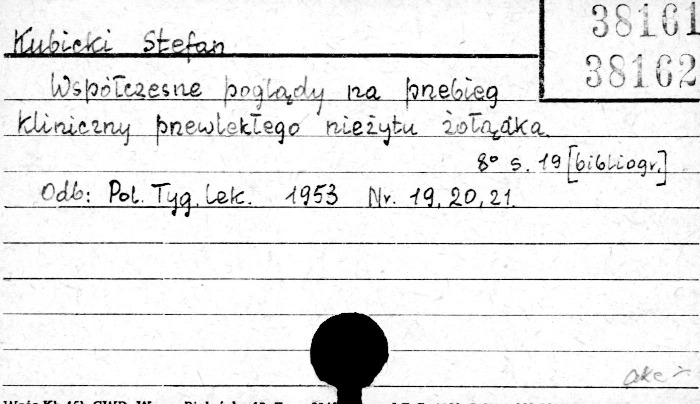 38161
38162
Kubicki Stefan
Współczesne poglądy na przebieg
kliniczny przewlekłego nieżytu żołądka.
8° s. 19 [bibliogr.]
Odb: Pol. Tyg. Lek. 1953 Nr. 19, 20, 21.